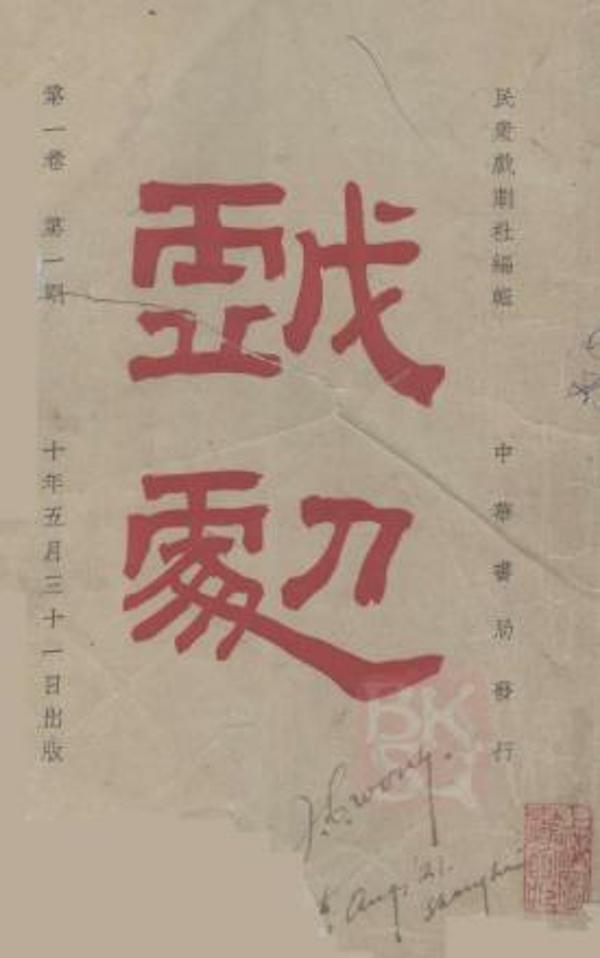 民衆戲劇社編輯
中華書局發行
戲劇
第一卷 第一期
十年五月三十一日出版
J. C. Wong.
Aug. '21.
Shanghai
BK